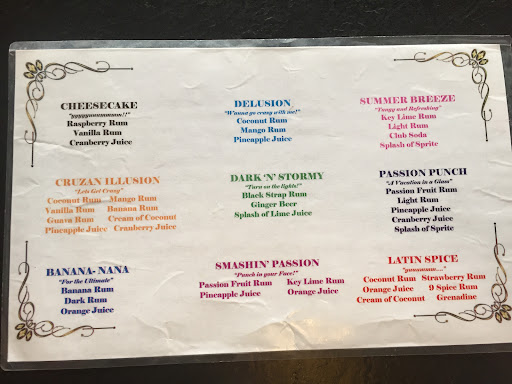 CHEESECAKE
"yuyyyuuummmm!!"
Raspberry Rum
Vanilla Rum
Cranberry Juice
DELUSION
"Wanna go crazy with me!"
Coconut Rum
Mango Rum
Pineapple Juice
SUMMER BREEZE
"Tangy and Refreshing"
Key Lime Rum
Light Rum
Club Soda
Splash of Sprite
CRUZAN ILLUSION
"Lets Get Crazy"
Coconut Rum Mango Rum
Vanilla Rum Banana Rum
Guava Rum Cream of Coconut
Pineapple Juice Cranberry Juice
DARK 'N' STORMY
"Turn on the lights!"
Black Strap Rum
Ginger Beer
Splash of Lime Juice
PASSION PUNCH
"A Vacation in a Glass"
Passion Fruit Rum
Light Rum
Pineapple Juice
Cranberry Juice
Splash of Sprite
BANANA- NANA
"For the Ultimate"
Banana Rum
Dark Rum
Orange Juice
SMASHIN' PASSION
"Punch in your Face!"
Passion Fruit Rum Key Lime Rum
Pineapple Juice Orange Juice
LATIN SPICE
Coconut Rum Strawberry Rum
Orange Juice 9 Spice Rum
Cream of Coconut Grenadine